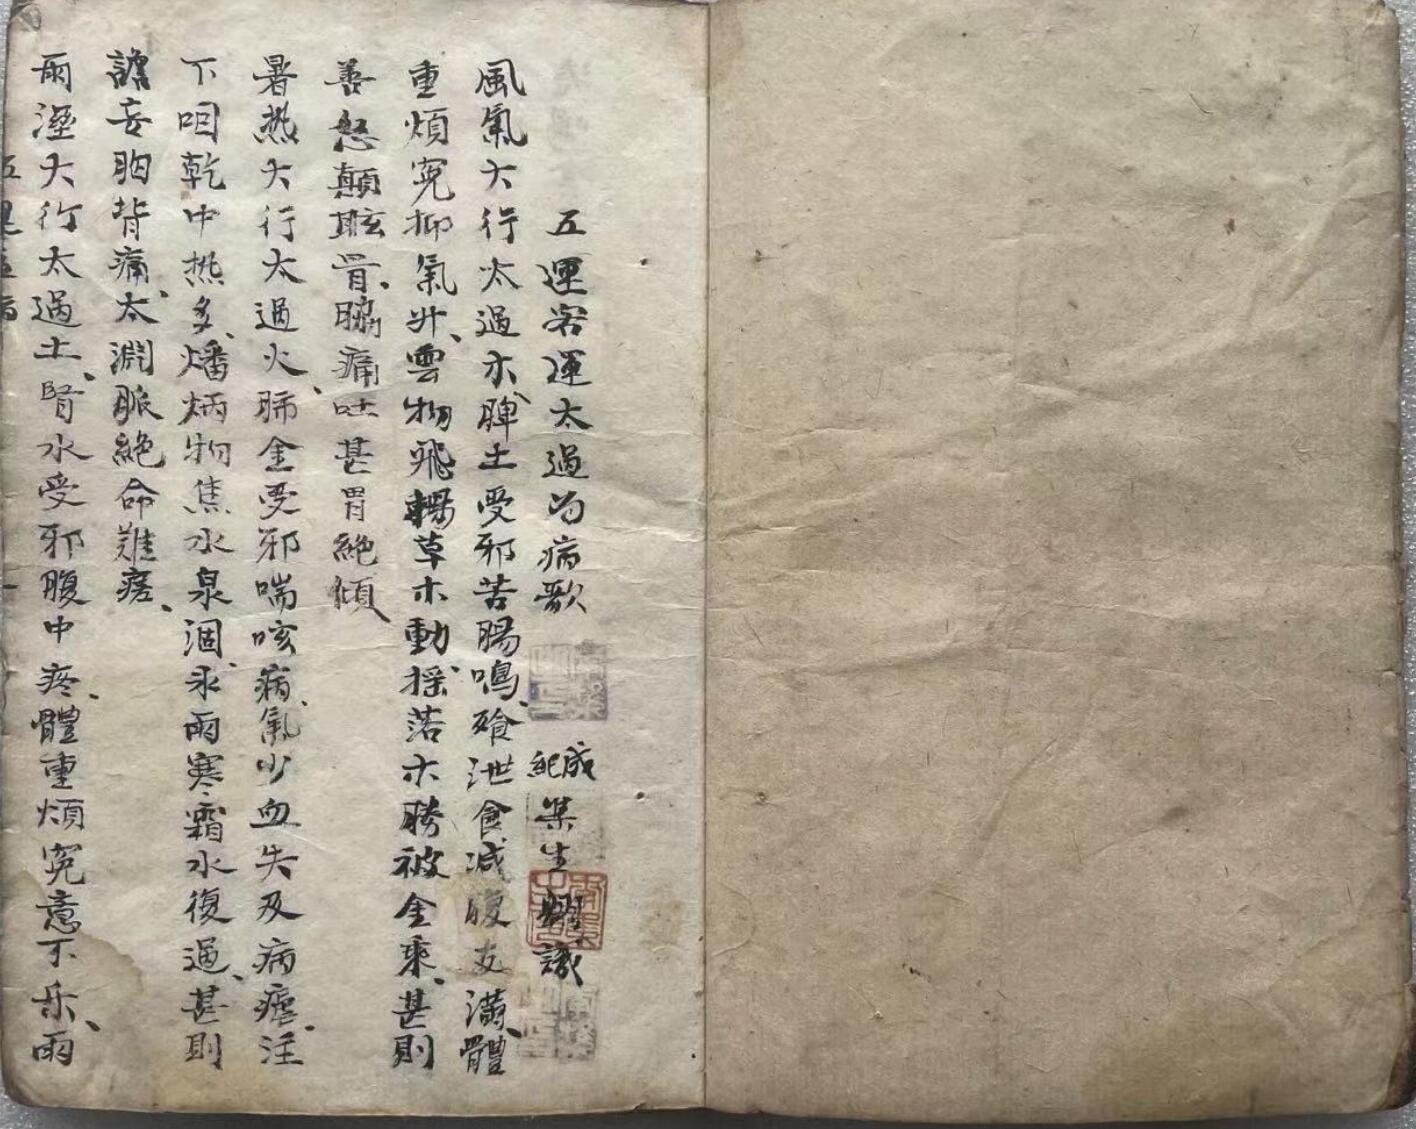 五運客運太過为病歌 成紀 集生 識
風氣大行太過木、脾土受邪苦腸鳴、飱泄食減腹支滿、體
重煩寃抑氣升、雲物飛颺草木動、揺落木勝被金乘、甚則
善怒顛眩冒、脇痛吐甚胃絕傾
暑热大行太過火、肺金受邪喘咳病、氣少血失及病瘧、注
下咽乾中热多、燔焫物焦水泉涸、永雨寒霜水復過、甚則
譫妄胸背痛、太淵脈絕命難瘥、
雨溼大行太過土、腎水受邪腹中疼、體重煩寃意不乐、雨